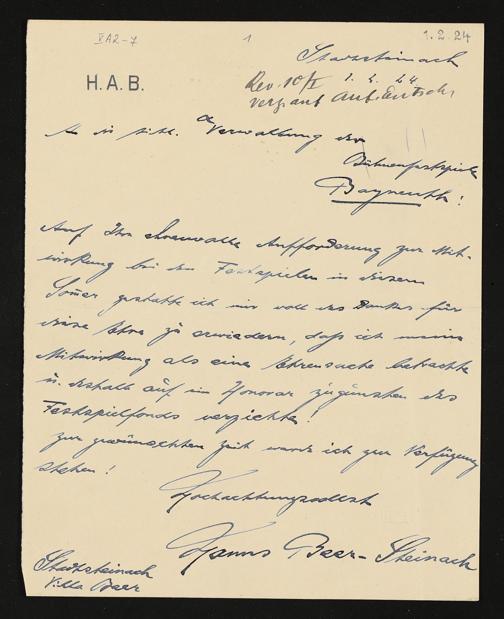 VA2-7
1
1.2.24
H.A.B.
Stadtsteinach
1. 2. 24
Rev. 10/I
verz. auf Anf.
An die titl. Verwaltung der
Bühnenfestspiele
Bayreuth!
Auf Ihre ehrenvolle Aufforderung zur Mit-
wirkung bei den Festspielen in diesem
Somer gestatte ich mir voll des Dankes für
diese Ehre zu erwiedern, daß ich meine
Mitwirkung als eine Ehrensache betrachte
u. deshalb auf ein Honorar zugunsten des
Festspielfonds verzichte!
Zur gewünschten Zeit werde ich zur Verfügung
stehen!
Hochachtungsvollst
Hanns Beer-Steinach
Stadtsteinach
Villa Beer